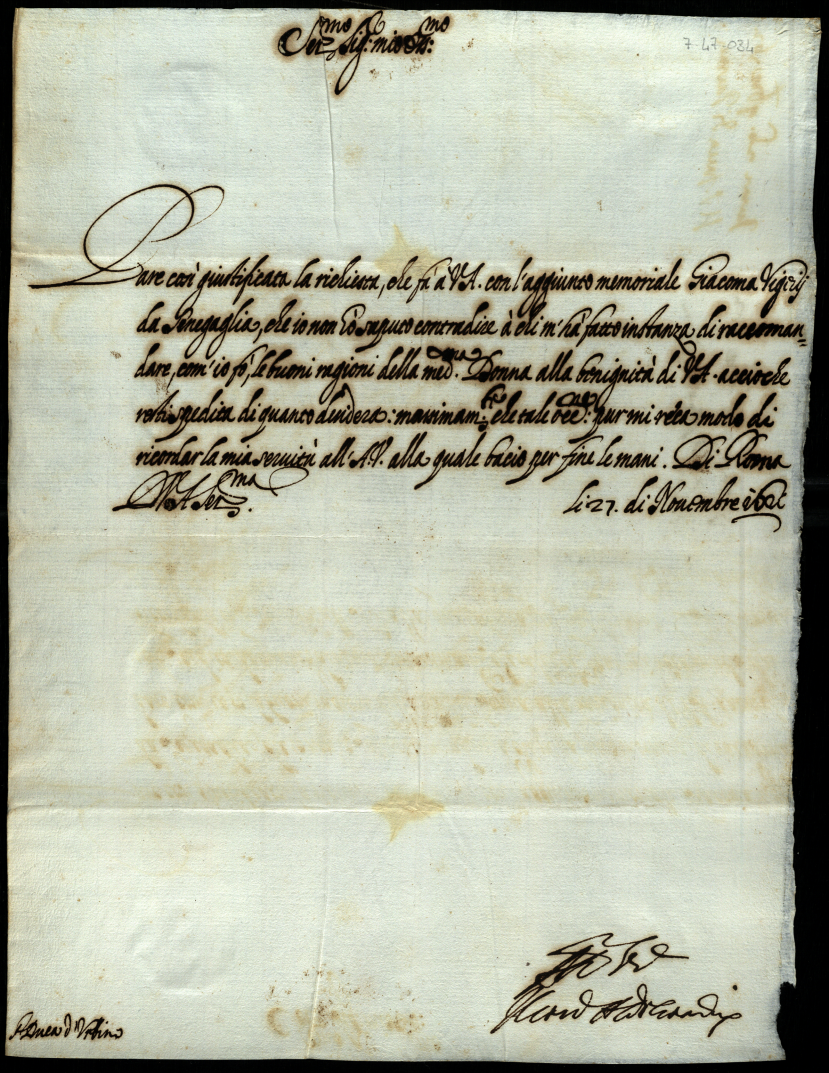 Ser.mo Sig.r mio Oss.mo
7-47-034
Pare così giustificata la richiesta, che fà à V.A. con l'aggiunto memoriale Giacoma Vigerij
da Senegaglia, che io non hò saputo contradire à chi m'hà fatto instanza di raccoman=
dare, com'io fò, le buoni ragioni della med.ma Donna alla benignità di V.A. acciò che
resti spedita di quanto desidera: massimam.te che tale occ.ne pur mi réca modo di
ricordar la mia servitù all'A.V. alla quale bacio per fine le mani. Di Roma
li 27. di Novembre
D.V.A. Ser.ma
Il Card Aldobrandino
S.r Duca d'Urbino